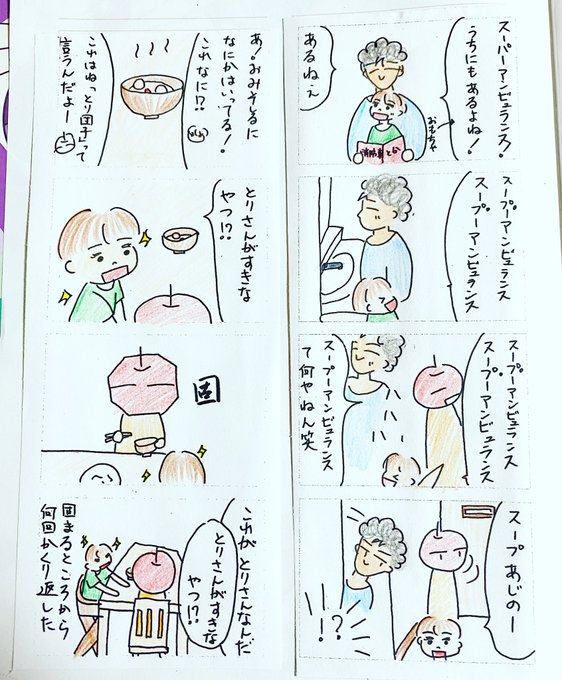 スーパーアンビュランス!
うちにもあるよね!
おもちゃ
あるねぇ
消防車とか
スーパーアンビュランス
スープーアンビュランス
スープーアンビュランス
スープーアンビュランス
スープーアンビュランス
て何やねん笑
スープあじのー
!?
あ!おみそしるに
なにかはいってる!
これなに!?
これはねっとり団子って
言うんだよー
とりさんがすきな
やつ!?
固
これがとりさんなんだ
とりさんがすきな
やつ!?
固まるところから
何回かくり返した